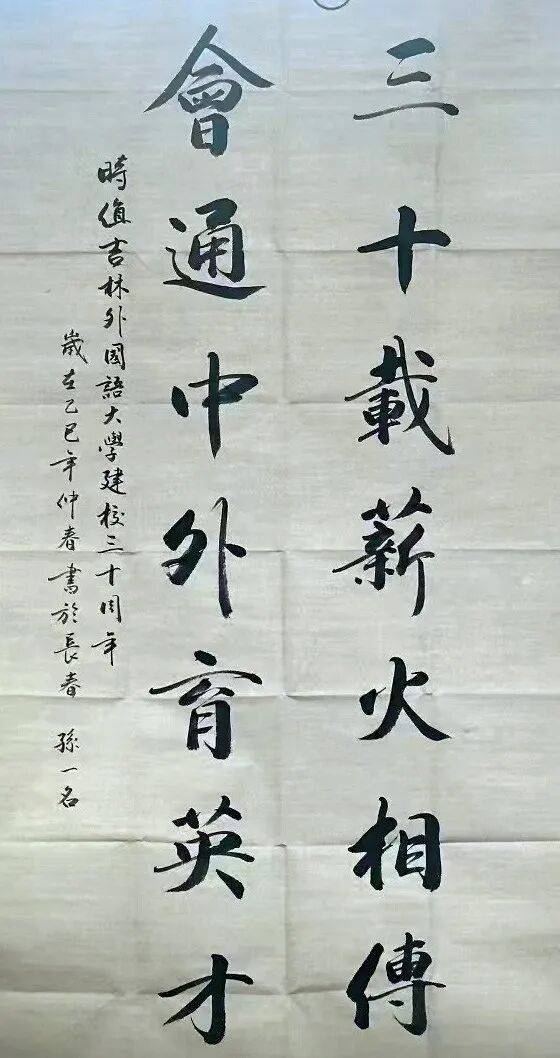 三十載薪火相傳
會通中外育英才
時值吉林外國語大學建校三十周年
歲在乙巳年仲春書於長春 孫一名